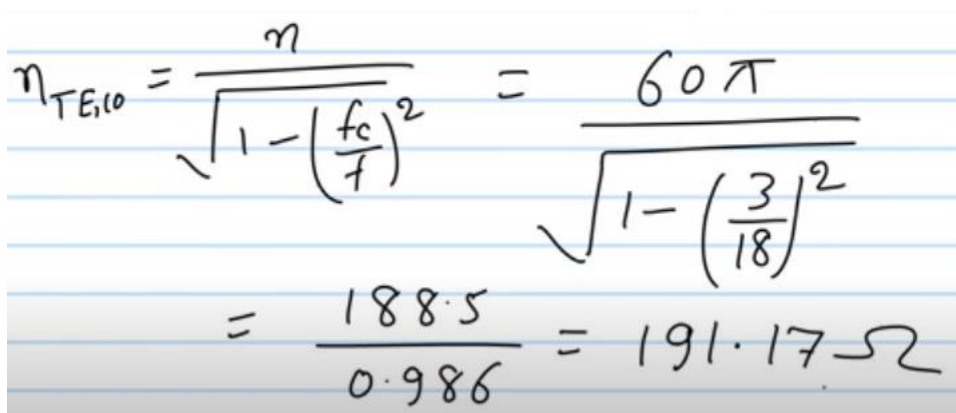 η_TE,10 = η / √(1 - (fc/f)²) = 60π / √(1 - (3/18)²)
= 188.5 / 0.986 = 191.17 Ω